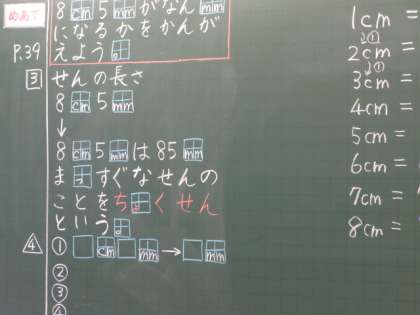 めあて
8cm5mmがなんmm
になるかをかんが
えよう。
P.39
3 せんの長さ
8cm5mm
↓
8cm5mmは85mm
まっすぐなせんの
ことをちょくせん
という。
4 ①□cm□mm→□mm
②
③
④
1cm=
①
2cm=
①
3cm=
4cm=
5cm=
6cm=
7cm=
8cm=